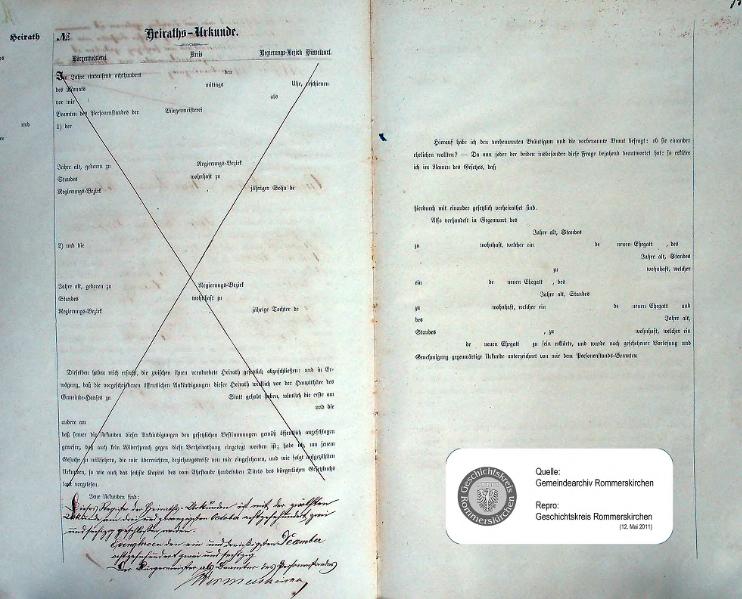 Heirath
und
№
Heiraths-Urkunde.
Bürgermeisterei Kreis Regierungs-Bezirk Düsseldorf.
Im Jahre eintausend achthundert den
des Monats mittags Uhr, erschienen
vor mir als
Beamten des Personenstandes der Bürgermeisterei
1) der
Jahre alt, geboren zu Regierungs-Bezirk
Standes wohnhaft zu
Regierungs-Bezirk jähriger Sohn de
2) und die
Jahre alt, geboren zu Regierungs-Bezirk
Standes wohnhaft zu
Regierungs-Bezirk jährige Tochter de
Dieselben haben mich ersucht, die zwischen ihnen verabredete Heirath gesetzlich abzuschließen; und in Er-
wägung, daß die vorgeschriebenen öffentlichen Ankündigungen dieser Heirath wirklich vor der Hauptthüre des
Gemeinde-Hauses zu Statt gehabt haben, nämlich die erste am
und die
andere am
daß ferner die Urkunden dieser Ankündigungen den gesetzlichen Bestimmungen gemäß öffentlich angeschlagen
gewesen, daß auch kein Widerspruch gegen diese Verheirathung eingelegt worden ist; habe ich, um jenem
Gesuche zu willfahren, die mir überreichten, beziehungsweise von mir eingesehenen, und wie folgt aufgezählten
Urkunden, so wie auch das sechste Kapitel des vom Ehestande handelnden Titels des bürgerlichen Gesetzbuchs
laut vorgelesen.
Jene Urkunden sind:
Dieses Register der Heiraths-Urkunden ist mit der
den ein und dreißigsten
achtzehnhundert zwei und
Der Bürgermeister als Beamter des Personenstandes
Hierauf habe ich den vorbenannten Bräutigam und die vorbenannte Braut befragt: ob sie einander
ehelichen wollten? — Da nun jeder der beiden insbesondere diese Frage bejahend beantwortet hat: so erkläre
ich im Namen des Gesetzes, daß
hierdurch mit einander gesetzlich verheirathet sind.
Also verhandelt in Gegenwart des
Jahre alt, Standes
zu wohnhaft, welcher ein de neuen Ehegatt , des
Jahre alt, Standes
zu wohnhaft, welcher
ein de neuen Ehegatt , des
Jahre alt, Standes
zu wohnhaft, welcher ein de neuen Ehegatt und
des Jahre alt,
Standes , zu wohnhaft, welcher ein
de neuen Ehegatt zu sein erklärte, und wurde nach geschehener Vorlesung und
Genehmigung gegenwärtige Urkunde unterzeichnet von mir dem Personenstands-Beamten
Geschichtskreis Rommerskirchen
Quelle:
Gemeindearchiv Rommerskirchen
Repro:
Geschichtskreis Rommerskirchen
(12. Mai 2011)